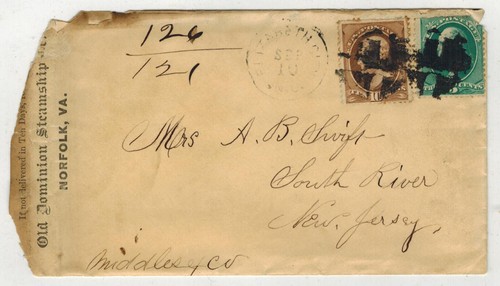 126
121
SEP
10
POSTAGE
10
CENTS
If not delivered in Ten Days,
Old Dominion Steamship
NORFOLK, VA.
Mrs A. B. Swift
South River
New Jersey,
Middlesex Co